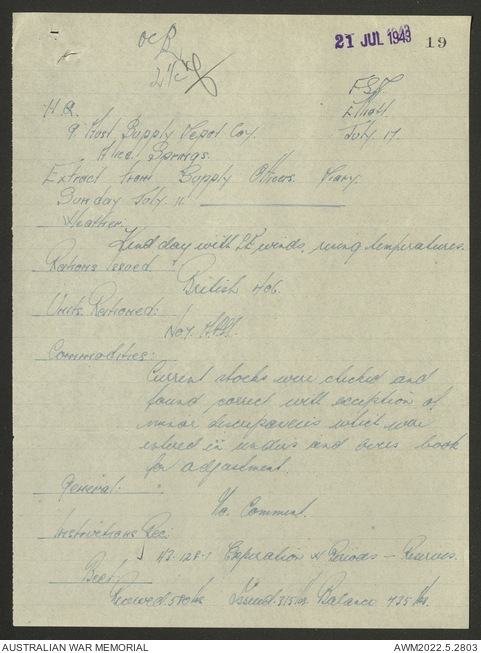 OC R
21 JUL 1943
19
F.S.D.
H.Q. Elliott.
9 Aust Supply Depot Coy. July 17.
Alice Springs.
Extract from Supply Officers Diary.
Sunday July 11.
Weather.
Kind day with S.E winds, rising temperatures.
Rations Issued:
British 406.
Units Rationed:
No 7.
Commodities:
Current stocks were checked and
found correct with exception of
minor discrepancies which were
entered in unders and overs book
for adjustment.
General.
No. Comment.
Instructions Rec:
43-128-1 Expiration of Periods - Reserves.
Beef.
Received. 580 lbs Issued. 315 lbs Balance 735 lbs.
AUSTRALIAN WAR MEMORIAL
AWM2022.5.2803